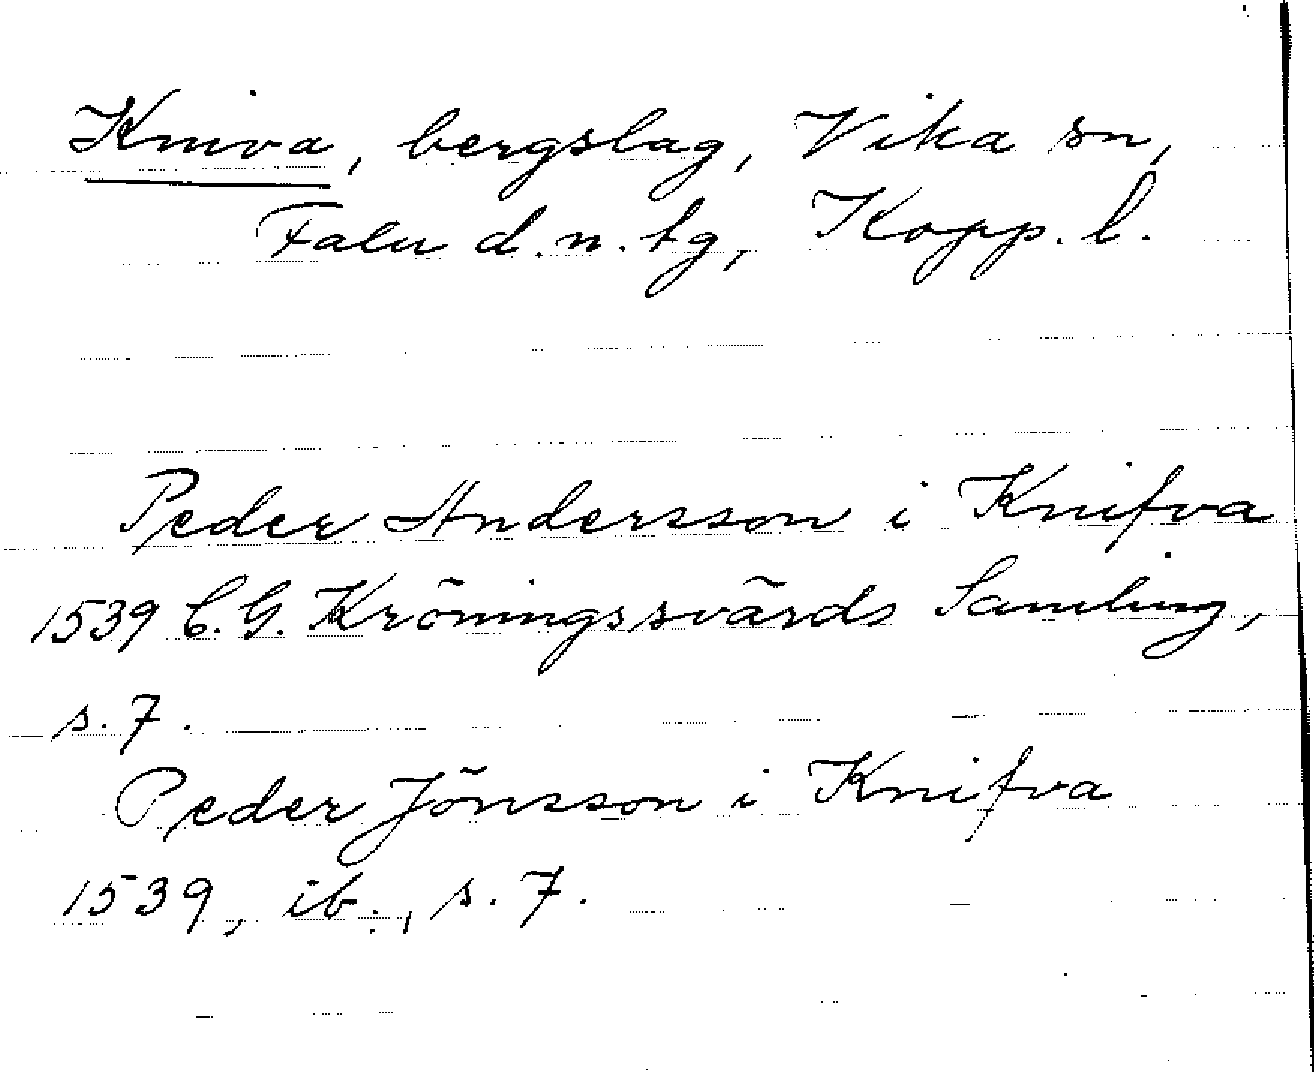 Kniva, bergslag, Vika sn,
Falu d.n. tg, Kopp. l.
Peder Andersson i Knifva
1539 C.G. Kröningssvärds Samling,
s. 7.
Peder Jönsson i Knifva
1539, ib., s. 7.